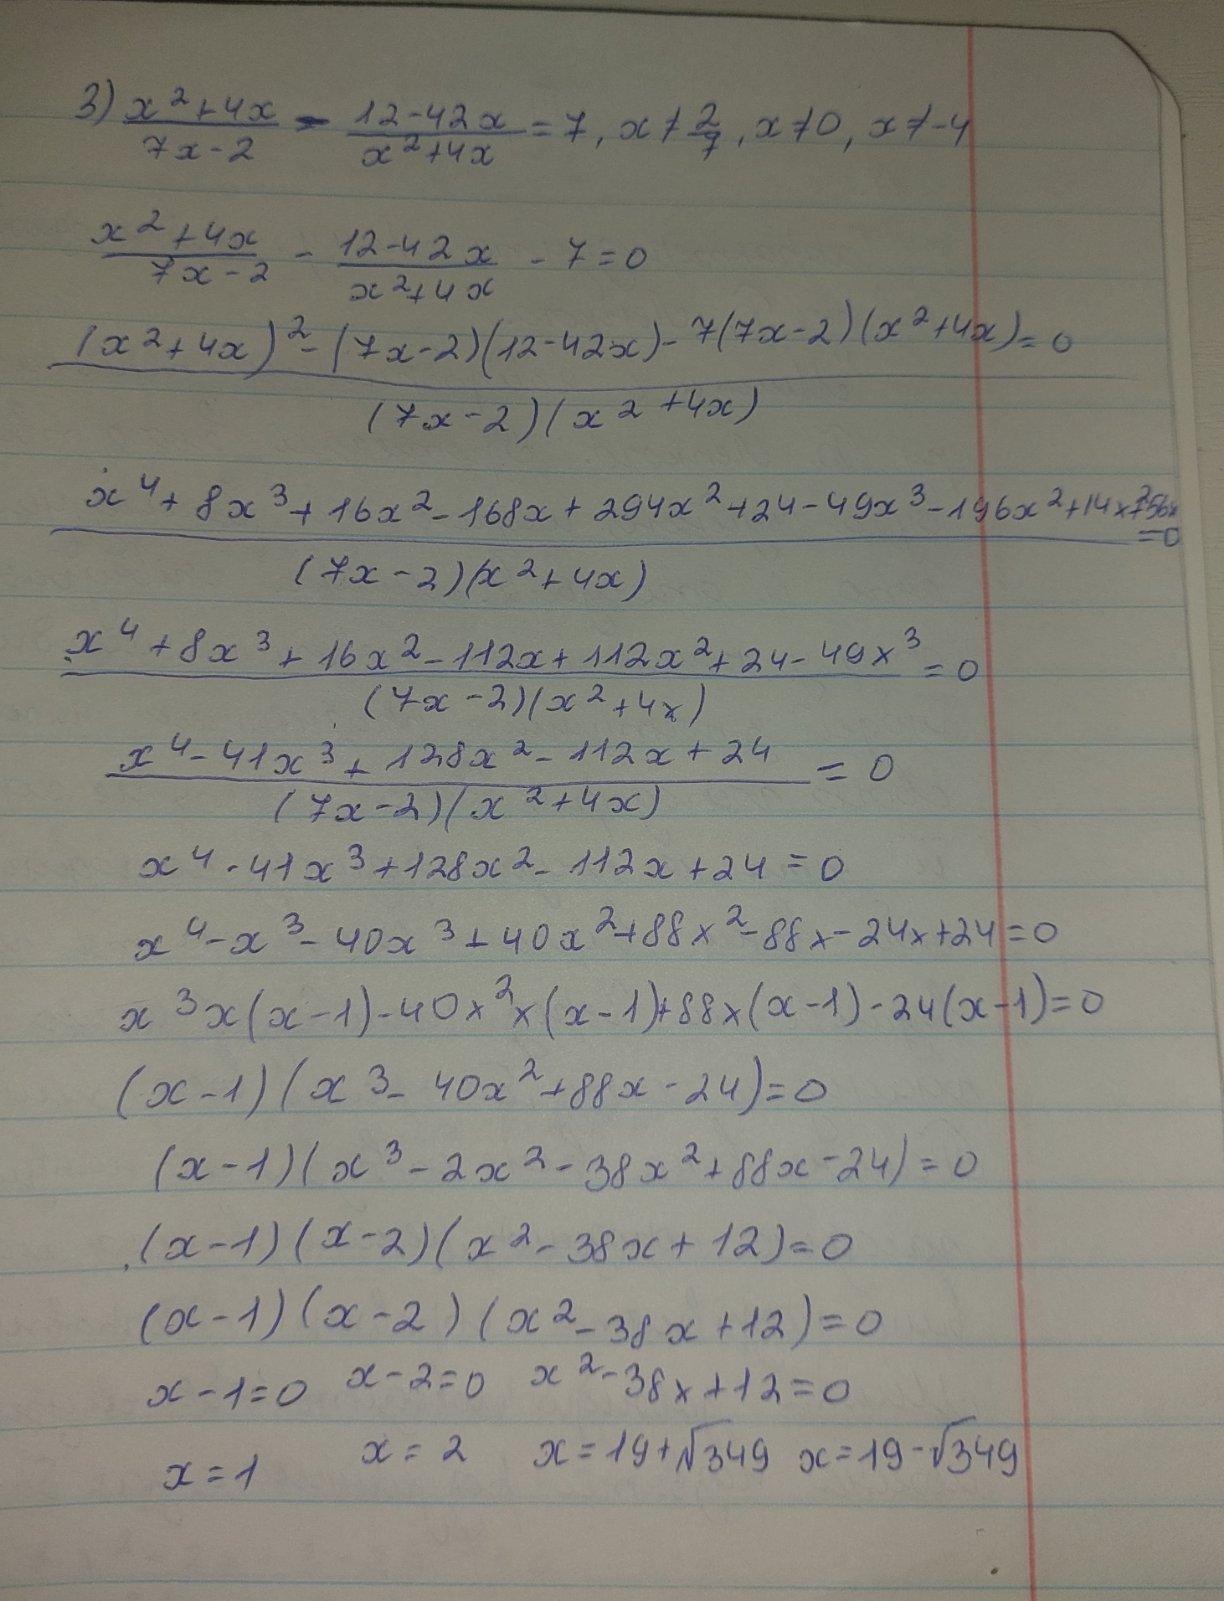 3) (x²+4x)/(7x-2) - (12-42x)/(x²+4x) = 7, x≠2/7, x≠0, x≠-4
(x²+4x)/(7x-2) - (12-42x)/(x²+4x) - 7=0
((x²+4x)²-(7x-2)(12-42x)-7(7x-2)(x²+4x))/((7x-2)(x²+4x)) = 0
(x⁴+8x³+16x²-168x+294x²+24-49x³-196x²+14x²+56x)/((7x-2)(x²+4x)) =0
(x⁴+8x³+16x²-112x+112x²+24-49x³)/((7x-2)(x²+4x)) =0
(x⁴-41x³+128x²-112x+24)/((7x-2)(x²+4x)) = 0
x⁴-41x³+128x²-112x+24=0
x⁴-x³-40x³+40x²+88x²-88x-24x+24=0
x³x(x-1)-40x²x(x-1)+88x(x-1)-24(x-1)=0
(x-1)(x³-40x²+88x-24)=0
(x-1)(x³-2x²-38x²+88x-24)=0
(x-1)(x-2)(x²-38x+12)=0
(x-1)(x-2)(x²-38x+12)=0
x-1=0 x-2=0 x²-38x+12=0
x=1 x=2 x=19+√349 x=19-√349